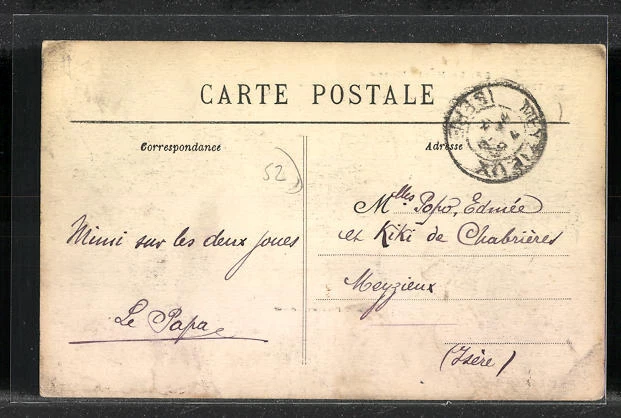 CARTE POSTALE
Correspondance
Adresse
MEYZIEUX
ISÈRE
52
Mimi sur les deux joues
Le Papa
Mlles Popo, Edmée
et Kiki de Chabrières
Meyzieux
(Isère)